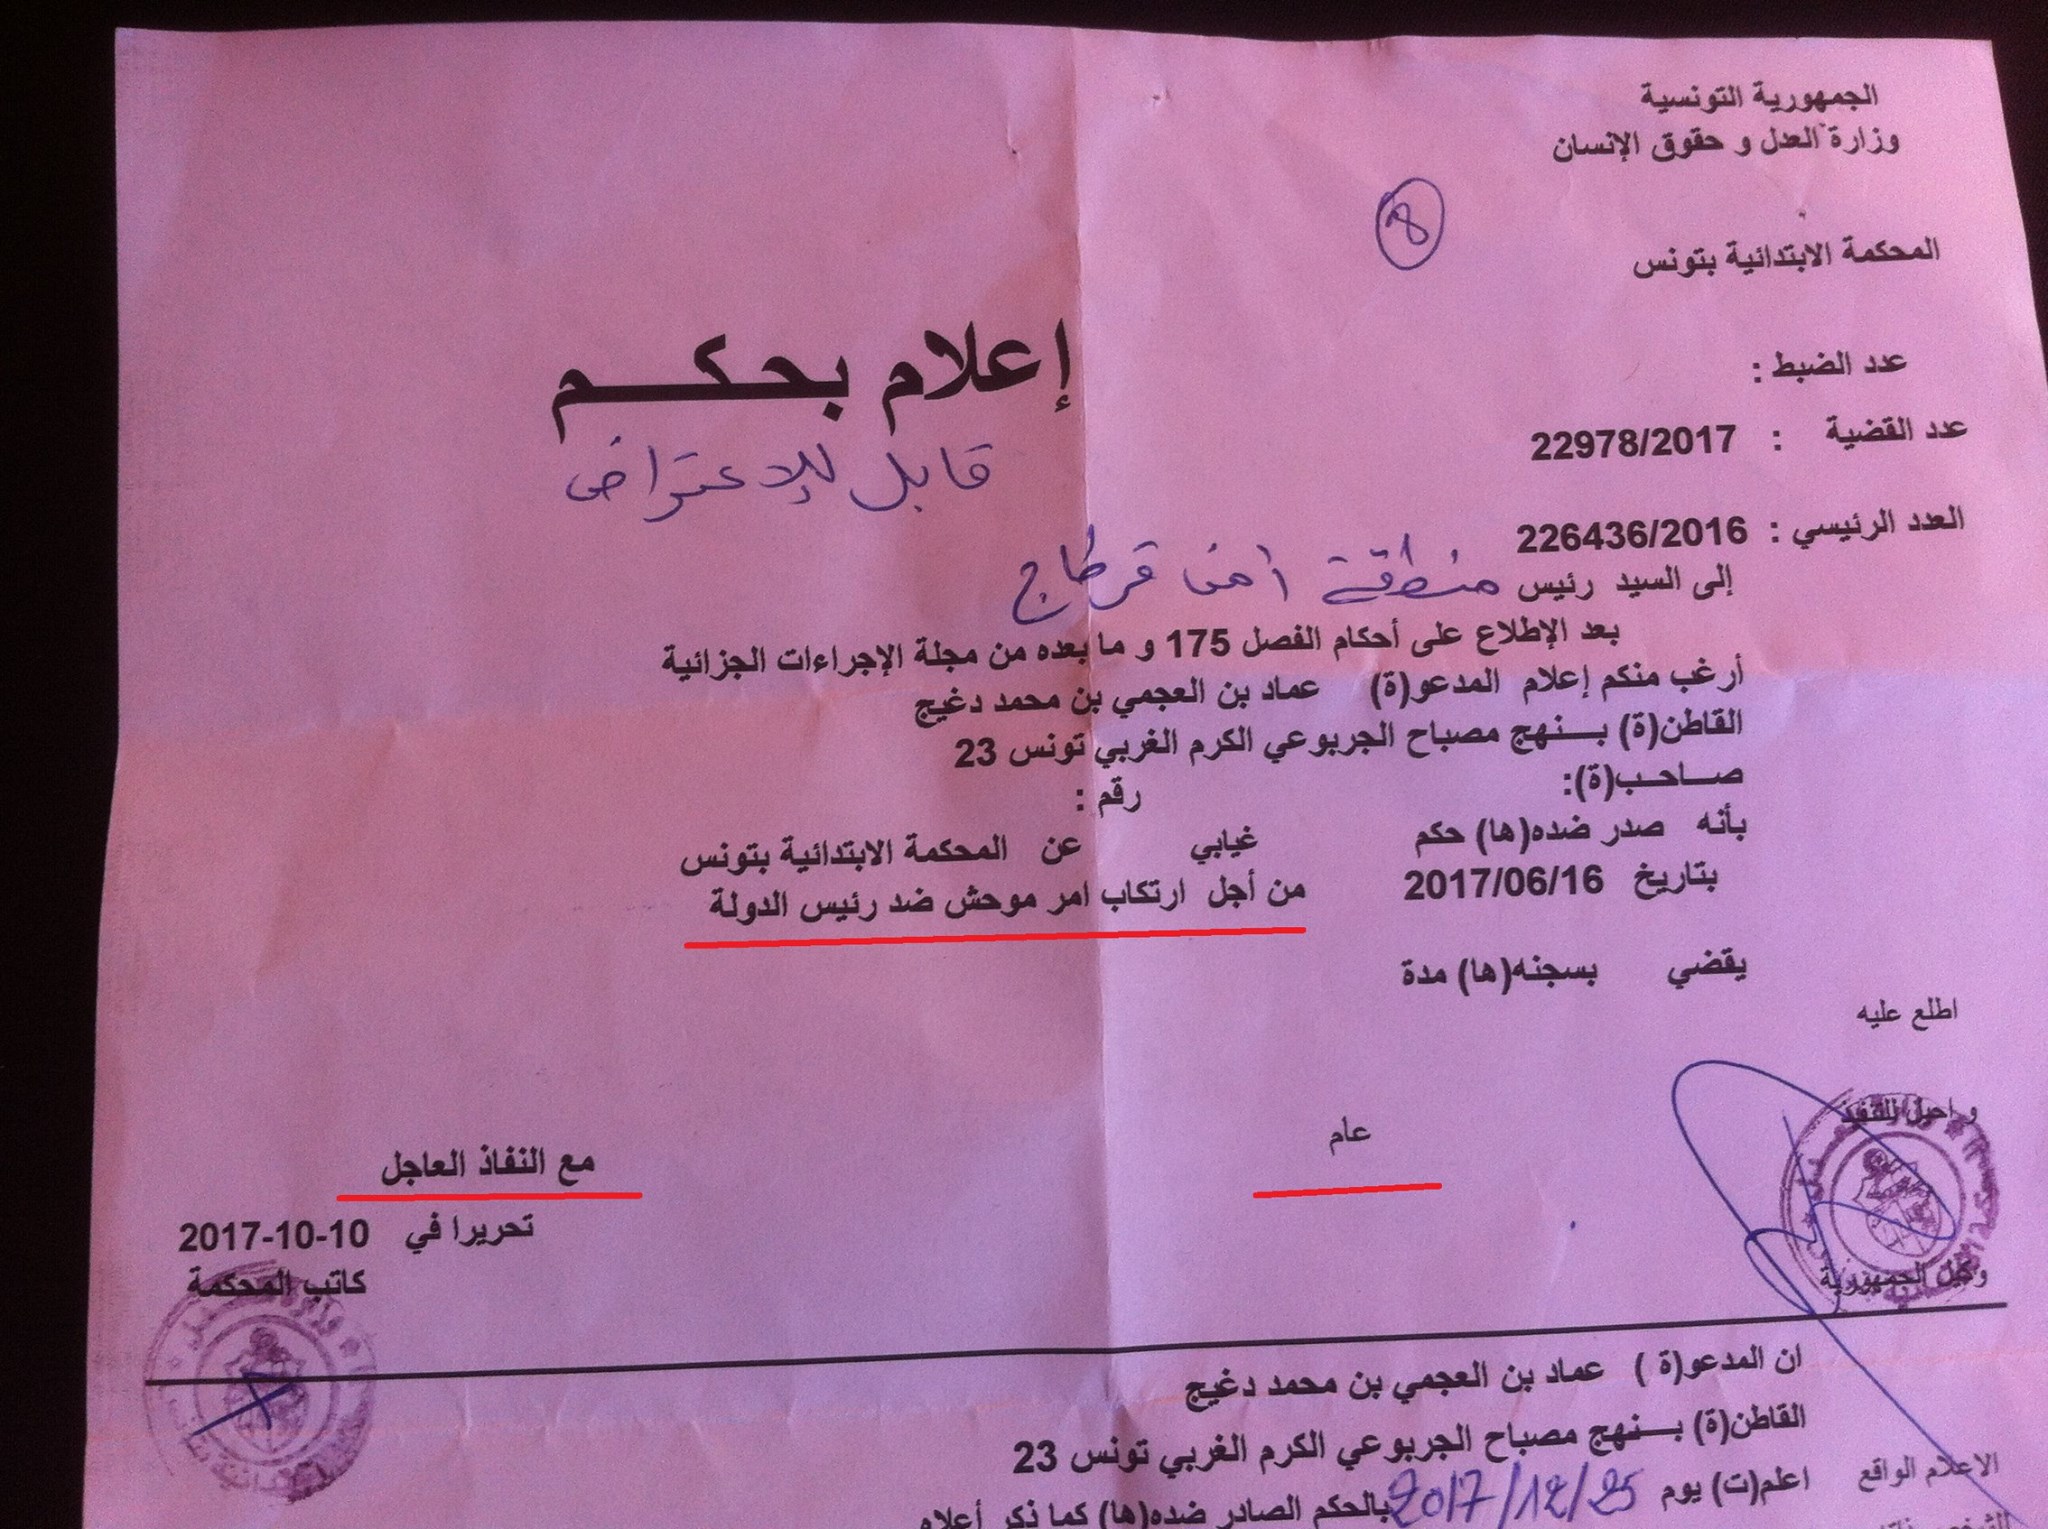 الجمهورية التونسية
وزارة العدل و حقوق الإنسان
8
المحكمة الابتدائية بتونس
إعلام بحكم
قابل للإعتراض
عدد الضبط :
عدد القضية : 22978/2017
العدد الرئيسي : 226436/2016
إلى السيد رئيس منطقة أمن قرطاج
بعد الإطلاع على أحكام الفصل 175 و ما بعده من مجلة الإجراءات الجزائية
أرغب منكم إعلام المدعو(ة) عماد بن العجمي بن محمد دغيج
القاطن(ة) بنهج مصباح الجربوعي الكرم الغربي تونس 23
صاحب(ة): رقم :
بأنه صدر ضده(ها) حكم غيابي عن المحكمة الابتدائية بتونس
بتاريخ 2017/06/16 من أجل ارتكاب امر موحش ضد رئيس الدولة
يقضي بسجنه(ها) مدة
اطلع عليه
و احيل للتنفيذ
عام
مع النفاذ العاجل
تحريرا في 2017-10-10
كاتب المحكمة
وكيل الجمهورية
ان المدعو(ة ) عماد بن العجمي بن محمد دغيج
القاطن(ة) بنهج مصباح الجربوعي الكرم الغربي تونس 23
الإعلام الواقع
اعلم(ت) يوم 2017/12/25 بالحكم الصادر ضده(ها) كما ذكر أعلاه